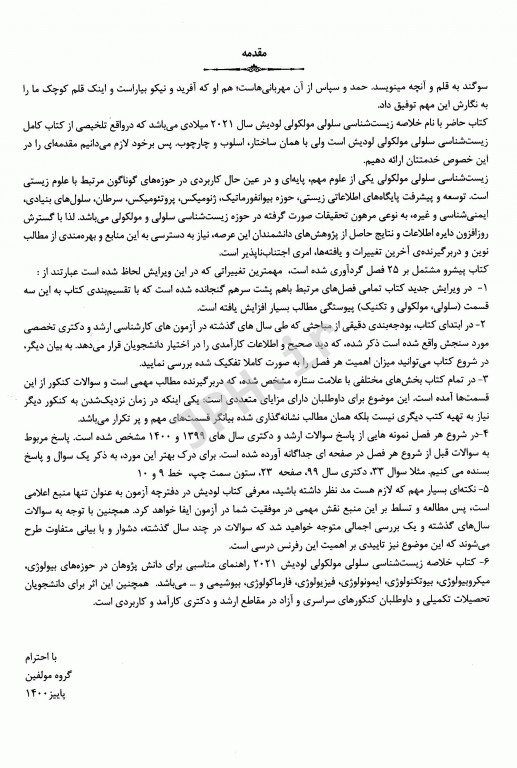 مقدمه
سوگند به قلم و آنچه مینویسد. حمد و سپاس از آن مهربانی‌هاست؛ هم او که آفرید و نیکو بیاراست و اینک قلم کوچک ما را
به نگارش این مهم توفیق داد.
کتاب حاضر با نام خلاصه زیست‌شناسی سلولی مولکولی لودیش سال ۲۰۲۱ میلادی می‌باشد که درواقع تلخیصی از کتاب کامل
زیست‌شناسی سلولی مولکولی لودیش است ولی با همان ساختار، اسلوب و چارچوب. پس برخود لازم می‌دانیم مقدمه‌ای را در
این خصوص خدمتتان ارائه دهیم.
زیست‌شناسی سلولی مولکولی یکی از علوم مهم، پایه‌ای و در عین حال کاربردی در حوزه‌های گوناگون مرتبط با علوم زیستی
است. توسعه و پیشرفت پایگاه‌های اطلاعاتی زیستی، حوزه بیوانفورماتیک، ژنومیکس، پروتئومیکس، سرطان، سلول‌های بنیادی،
ایمنی‌شناسی و غیره، به نوعی مرهون تحقیقات صورت گرفته در حوزه زیست‌شناسی سلولی و مولکولی می‌باشد. لذا با گسترش
روزافزون دایره اطلاعات و نتایج حاصل از پژوهش‌های دانشمندان این عرصه، نیاز به دسترسی به این منابع و بهره‌مندی از مطالب
نوین و دربرگیرنده‌ی آخرین تغییرات و یافته‌ها، امری اجتناب‌ناپذیر است.
کتاب پیشرو مشتمل بر ۲۵ فصل گردآوری شده است، مهمترین تغییراتی که در این ویرایش لحاظ شده است عبارتند از :
۱- در ویرایش جدید کتاب تمامی فصل‌های مرتبط باهم پشت سرهم گنجانده شده است که با تقسیم‌بندی کتاب به این سه
قسمت (سلولی، مولکولی و تکنیک) پیوستگی مطالب بسیار افزایش یافته است.
۲- در ابتدای کتاب، بودجه‌بندی دقیقی از مباحثی که طی سال های گذشته در آزمون های کارشناسی ارشد و دکتری تخصصی
مورد سنجش واقع شده است ذکر شده، که دید صحیح و اطلاعات کارآمدی را در اختیار دانشجویان قرار می‌دهد. به بیان دیگر،
در شروع کتاب می‌توانید میزان اهمیت هر فصل را به صورت کاملا تفکیک شده بررسی نمایید.
۳- در تمام کتاب بخش‌های مختلفی با علامت ستاره مشخص شده، که دربرگیرنده مطالب مهمی است و سوالات کنکور از این
قسمت‌ها آمده است. این موضوع برای داوطلبان دارای مزایای متعددی است. یکی اینکه در زمان نزدیک‌شدن به کنکور دیگر
نیاز به تهیه کتب دیگری نیست بلکه همان مطالب نشانه‌گذاری شده بیانگر قسمت‌های مهم و پر تکرار می‌باشد.
۴-در شروع هر فصل نمونه هایی از پاسخ سوالات ارشد و دکتری سال های ۱۳۹۹ و ۱۴۰۰ مشخص شده است. پاسخ مربوط
به سوالات قبل از شروع هر فصل در صفحه ای جداگانه آورده شده است. برای درک بهتر این مورد، به ذکر یک سوال و پاسخ
بسنده می کنیم. مثلا سوال ۳۳، دکتری سال ۹۹، صفحه ۲۳، ستون سمت چپ، خط ۹ و ۱۰
۵- نکته‌ای بسیار مهم که لازم هست مد نظر داشته باشید، معرفی کتاب لودیش در دفترچه آزمون به عنوان تنها منبع اعلامی
است، پس مطالعه و تسلط بر این منبع نقش مهمی در موفقیت شما در آزمون ایفا خواهد کرد. همچنین با توجه به سوالات
سال‌های گذشته و یک بررسی اجمالی متوجه خواهید شد که سوالات در چند سال گذشته، دشوار و با بیانی متفاوت طرح
می‌شوند که این موضوع نیز تاییدی بر اهمیت این رفرنس درسی است.
۶- کتاب خلاصه زیست‌شناسی سلولی مولکولی لودیش ۲۰۲۱ راهنمای مناسبی برای دانش پژوهان در حوزه‌های بیولوژی،
میکروبیولوژی، بیوتکنولوژی، ایمونولوژی، فیزیولوژی، فارماکولوژی، بیوشیمی و ... می‌باشد. همچنین این اثر برای دانشجویان
تحصیلات تکمیلی و داوطلبان کنکورهای سراسری و آزاد در مقاطع ارشد و دکتری کارآمد و کاربردی است.
با احترام
گروه مولفین
پاییز۱۴۰۰